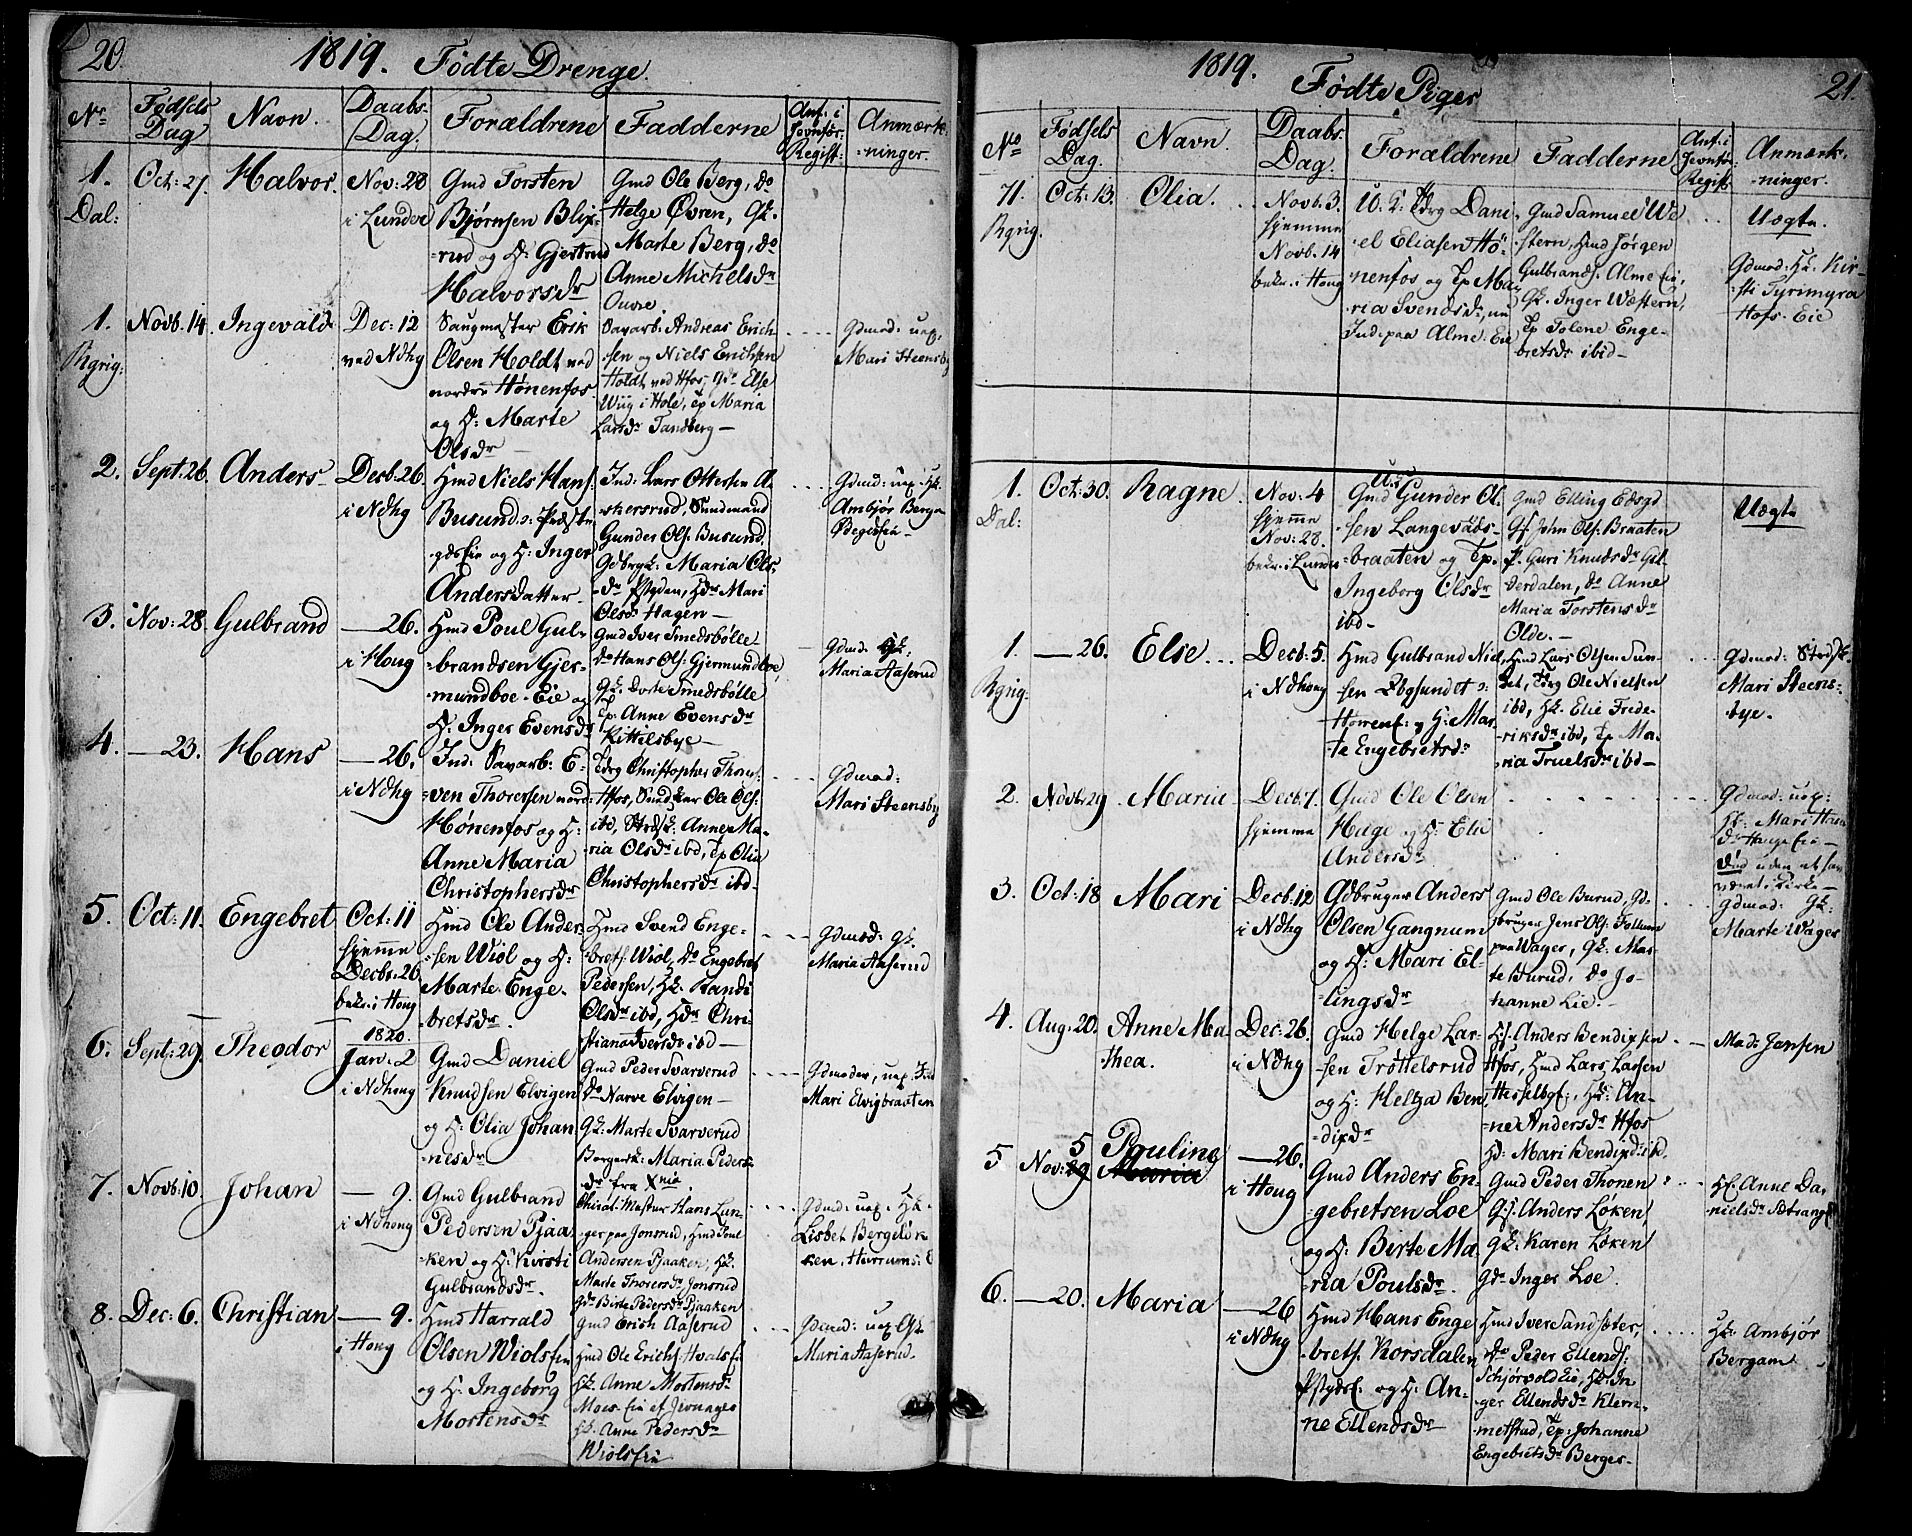 20.
1819. Födte Drenge.
No Födsels Dag Navn. Daabs Dag. Forældrene Fadderne Anf. i Jevnför: Regist: Anmærk-ninger.
1. Dal:
Oct: 27.
Halvor.
Nov: 28
i Lunder
Gmd Torsten
Bjørnsen Blix-
rud og H: Gjertrud
Halvorsdr
Gmd Ole Berg, do
Helge Øvren, Gk.
Marte Berg, do
Anne Michelsdr
1. Rgrig.
Novb. 14
Ingevald
Dec: 12
ved Ndhg
Saugmester Erik
Olsen Holdt ved
nordre Hönenfos
og H: Marte
Olsdr
Savarb: Andreas Erich-
sen og Niels Erichsen
Holdt ved Hfos, Gdr Else
Wiig i Hole, Tp Maria
Larsdr Tandberg –
Gdmod:
Mari Steensby
2.
Sept: 26
Anders
Decb: 26
i Ndhg
Hmd Niels Hans:
Busund
og H: Inger
Andersdatter
Ind: Lars Ottersen A
skersrud, Sundmand
Gunder Ols: Busund,
Gdbrgk: Maria Ols
dr Hdr Mari
Olsdr Hagen –
Gdmod:
Ambjör Berga
3.
Nov: 28.
Gulbrand
— 26.
i Houg
Hmd Poul Gul-
brandsen Gjer-
mundboe-Eie og
H. Inger Evensdr
Gmd Iver Smedsbölle
do Hans Ols: Gjermundboe,
Gk. Dorte Smedsbölle
Tp: Anne Evensdr
Kittilsbye –
Gdmd: Gk:
Maria Aaserud
4.
— 23.
Hans
— 26.
i Ndhg
Ind: Savarb: E-
ven Thoresen nord:
Hönenfos og H:
Anne Maria
Christophersdr
Christopher Thom:
Hfos, Ole Ols:
ibd, Anne Ma-
ria Olsdr ibd, Tp Olia
Christophersdr ibd –
Gdmod:
Mari Steensby
5.
Oct: 11.
Engebret
Oct: 11
hjemme
Decbr: 26
bekr. i Houg
Hmd Ole Ander-
sen Wiöl og H:
Marte Enge-
bretsdr.
Hmd Svend Enge-
brets: Wiöl, do Engebret
Pedersen, Hk. Randi
Olsdr ibd, Hdr Chri-
stiana Iversdr ibd –
Gdmod: Gk.
Maria Aaserud
6.
Sept: 29.
Theodor
1820.
Jan: 2
i Ndhoug
Gmd Daniel
Knudsen Elvigen
og H. Olia Johan
nesdr
Gmd Peder Svarverud
do Narve Elvigen –
Gk: Marte Svarverud
Maria Peders-
dr fra Xnia.
Gdmoder,
Mari Elvigbraaten
7.
Novb: 10.
Johan
— 9.
i Ndhoug
Gmd Gulbrand
Pedersen Pjaa
ken og H: Kirsti
Gulbrandsdr.
Hans Lun-
ger paa Jonsrud, Hmd Poul
Andersen Pjaaken, Hk.
Marte Thoresdr Jonsrud
Gdr Birte Pedersdr Pjaaken
Gdmd:
Lisbet
8.
Dec: 6.
Christian
— 9.
i Houg
Hmd Harrald
Olsen Wiölseie
og H: Ingeborg
Mortensdr
Gmd Erich Aaserud
Hmd Ole Erichs:
Hk. Anne Mortensdr
Moes-Eie af Jevnager
Hk. Anne Pedersdr
Wiölseie
Gdmod:
Maria Aaserud.
1819. Födte Piger
21.
No Födsels Dag. Navn. Daabs Dag. Forældrene Fadderne Anf: i Jevnför Regist Anmærk-ninger.
71. Rgrig.
Oct: 13.
Olia.
Novb. 3.
hjemme
Novb. 14
bekr. i Houg
Dani-
el Eliasen Hö-
nenfos og Tp Ma-
ria Svendsdr,
Ind: paa Alme-Eie
Gmd Samuel We
stern, Hmd Jörgen
Gulbrands: Alme Eie,
Gk. Inger Wæstern,
Tp Tolene Enge-
bretsdr ibid –
Uægte.
Gdmod: Hk. Kir-
sti Tyrimyra
Hofs-Eie
1. Dal:
Oct: 30.
Ragne.
Nov: 4
hjemme
Nov: 28.
bekr. i Lunder
Gmd Gunder Ol-
sen Langevads-
braaten og Tp.
Ingeborg Olsdr
ibd –
Gmd Elling
John Ols: Braaten
P. Guri Knudsdr Gul
derdalen, do Anne
Maria Torstensdr
Olde. –
Uægte
1. Rgrig:
— 26.
Else
Decb: 5.
i Ndhoug
Hmd Gulbrand Niel
sen
og H: Mar-
te Engebretsdr
Hmd Lars Olsen
Ole Nielsen
ibd, Hk. Elie Frede-
riksdr ibd, Tp Ma-
ria Truelsdr ibd –
Gdmod:
Mari Steens:
bye.
2.
Novb: 29
Maria
Decb: 7.
hjemme
Gmd Ole Olsen
Hage og H: Elie
Andersdr
Gdmod:
Hk: Mari
3.
Oct: 18
Mari
Decb: 12
i Ndhg
Gdbruger Anders
Olsen Gangnum
og H: Mari El-
lingsdr
Gmd Ole Burud, Gd-
bruger Jens Ols: Follum
paa Wager, Gk: Mar-
te Burud, do Jo-
hanne Lie. –
Gdmod: Gk:
Marte Wager
4.
Aug: 20.
Anne Ma-
thea.
Dec: 26.
i Ndhg
Gmd Helge Lar-
sen Tröttelsrud
og H: Helga Ben
dixdr
Anders Bendixsen
Hfos, Hmd Lars Larsen
Hk: An-
ne Andersdr Hfos
Hd: Mari Bendixd: ibd.
Mad: Jansen
5
Nov: 29 5
Maria Pauline
— 26.
i Houg
Gmd Anders En-
gebretsen Loe
og H: Berte Ma-
ria Poulsdr.
Gmd Peder Thonen
Gs: Anders Löken,
Gk: Karen Löken
Gdr Inger Loe.
Anne Da-
nielsdr Sætrang
6.
— 20.
Maria
— 26
i Ndhg
Hmd Hans Enge
brets. Korsdalen
og H: An-
ne Ellendsdr
Hmd Iver Sandsæter,
do Peder Ellends:
Schjörvold Eie, Hk: In-
ger Ellendsdr Klem-
metstad, Tp: Johanne
Engebretsdr Berger.
Hk: Ambjör
Bergam